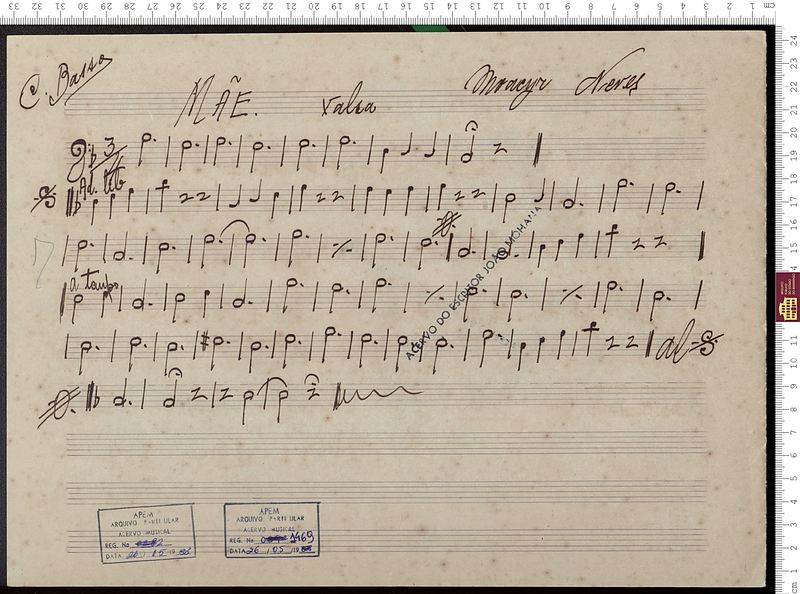 C. Basso
MÃE. Valsa
Moacyr Neves
3
Ad. lib
a tempo
al
ACERVO DO ESCRITOR JOÃO MOHANA
APEM
ARQUIVO PARTICULAR
ACERVO MUSICAL
REG. No
DATA 26 / 05 / 19 88
APEM
ARQUIVO PARTICULAR
ACERVO MUSICAL
REG. No 1469
DATA 26 / 05 / 19 88